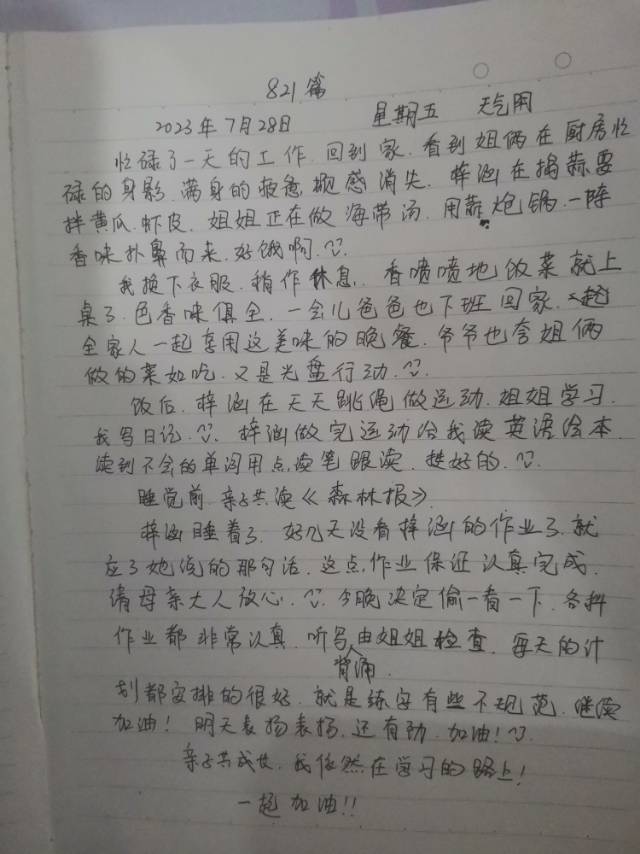 821篇
2023年7月28日 星期五 天气阴
忙碌了一天的工作.回到家.看到姐俩在厨房忙
碌的身影.满身的疲惫概感消失.梓涵在捣蒜要
拌黄瓜.虾皮.姐姐正在做海带汤.用蒜炮锅.一阵
香味扑鼻而来.好饿啊.
我换下衣服.稍作休息.香喷喷地饭菜就上
桌了.色香味俱全.一会儿爸爸也下班回家.
全家人一起享用这美味的晚餐.爷爷也夸姐俩
做的菜好吃.又是光盘行动.
饭后.梓涵在天天跳绳做运动.姐姐学习.
我写日记.梓涵做完运动给我读英语绘本
读到不会的单词用点读笔跟读.挺好的.
睡觉前.亲子共读《森林报》.
梓涵睡着了.好几天没看梓涵的作业了.就
应了她说的那句话.这点.作业保证认真完成.
请母亲大人放心.今晚决定偷一看一下.各科
作业都非常认真.听写背诵由姐姐检查.每天的计
划都安排的很好.就是练字有些不规范.继续
加油！明天表扬表扬.还有劲.加油！
亲子共成长.我依然在学习的路上！
一起加油!!